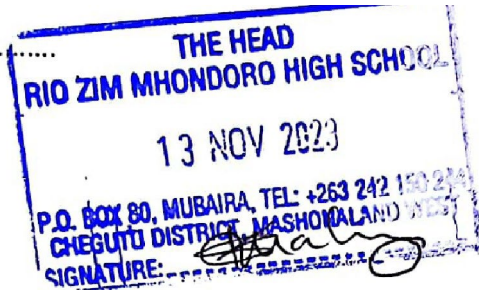 THE HEAD
RIO ZIM MHONDORO HIGH SCHOOL
13 NOV 2023
P.O. BOX 80, MUBAIRA, TEL: +263 242
CHEGUTU DISTRICT, MASHONALAND WEST
SIGNATURE: